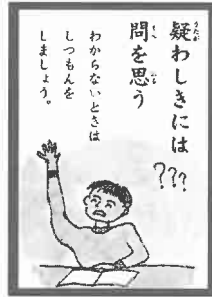 疑わしきには
問を思う
???
わからないときは
しつもんを
しましょう。